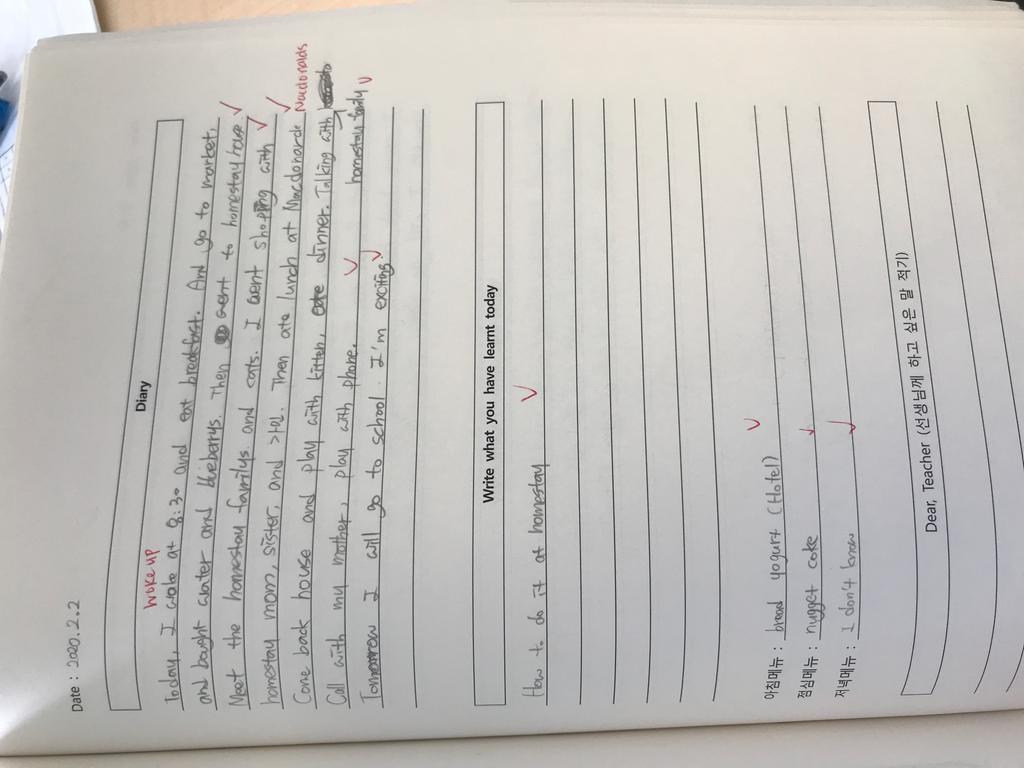 Date : 2020. 2. 2
Diary
woke up
Today, I wake at 8:30 and eat breakfast. And go to market.
and bought water and bluebarys. Then went to homestay house
Meet the homestay familys. and cats. I went shopping with
homestay mom, sister, and 서은. Then ate lunch at Macdonards Macdonalds
Come back house and play with kitten, dinner. Talking with
Call with my mother, play with phone. homestay family
Tomorrow I will go to school. I'm exciting.
Write what you have learnt today
How to do it at homestay
아침메뉴 : bread yogurt (Hotel)
점심메뉴 : nugget coke
저녁메뉴 : I don't know
Dear, Teacher (선생님께 하고 싶은 말 적기)